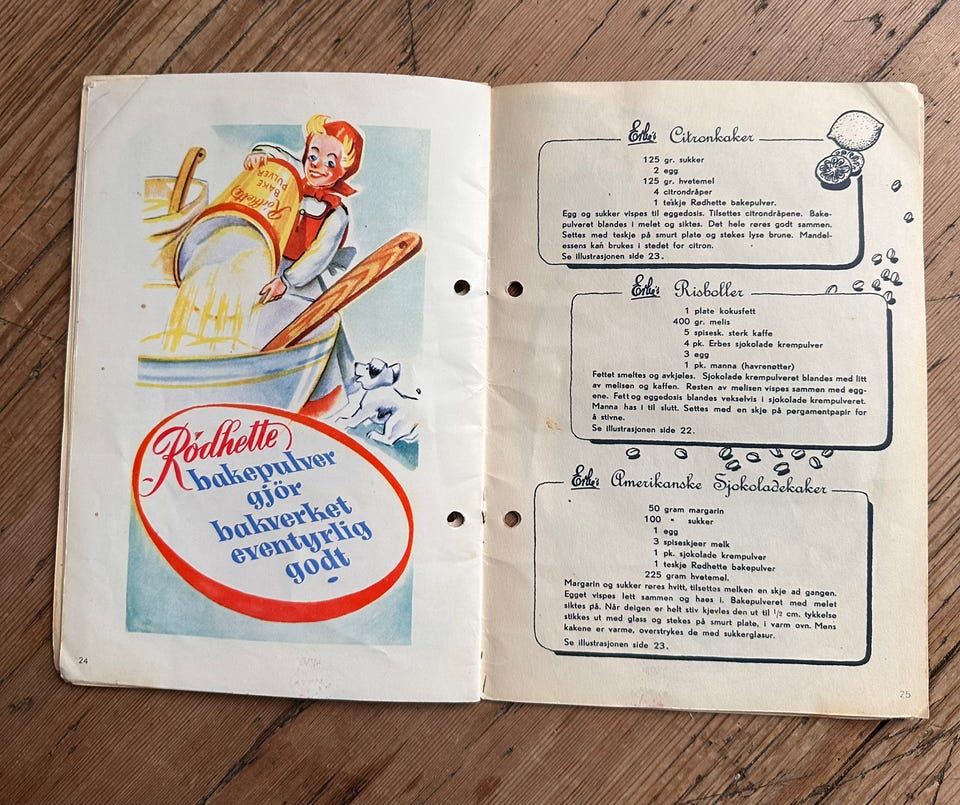 Rødhette
BAKE
PULVER
Rødhette
bakepulver
gjör
bakverket
eventyrlig
godt
24
Erbe's Citronkaker
125 gr. sukker
2 egg
125 gr. hvetemel
4 citrondråper
1 teskje Rødhette bakepulver.
Egg og sukker vispes til eggedosis. Tilsettes citrondråpene. Bake-
pulveret blandes i melet og siktes. Det hele røres godt sammen.
Settes med teskje på smurt plate og stekes lyse brune. Mandel-
essens kan brukes i stedet for citron.
Se illustrasjonen side 23.
Erbe's Risboller
1 plate kokusfett
400 gr. melis
5 spisesk. sterk kaffe
4 pk. Erbes sjokolade krempulver
3 egg
1 pk. manna (havrenøtter)
Fettet smeltes og avkjøles. Sjokolade krempulveret blandes med litt
av melisen og kaffen. Resten av melisen vispes sammen med egg-
ene. Fett og eggedosis blandes vekselvis i sjokolade krempulveret.
Manna has i til slutt. Settes med en skje på pergamentpapir for
å stivne.
Se illustrasjonen side 22.
Erbe's Amerikanske Sjokoladekaker
50 gram margarin
100 " sukker
1 egg
3 spiseskjeer melk
1 pk. sjokolade krempulver
1 teskje Rødhette bakepulver
225 gram hvetemel.
Margarin og sukker røres hvitt, tilsettes melken en skje ad gangen.
Egget vispes lett sammen og haes i. Bakepulveret med melet
siktes på. Når deigen er helt stiv kjevles den ut til 1/2 cm. tykkelse
stikkes ut med glass og stekes på smurt plate, i varm ovn. Mens
kakene er varme, overstrykes de med sukkerglasur.
Se illustrasjonen side 23.
25